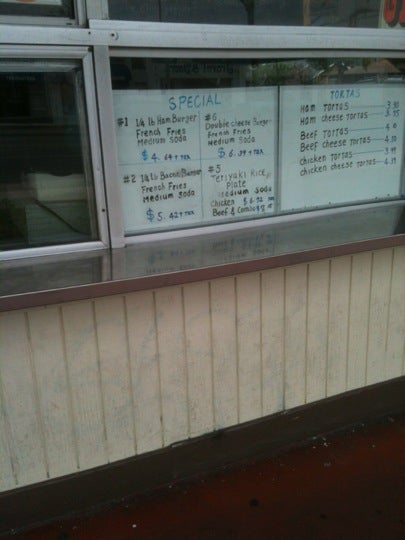 SPECIAL
#1 1/4 lb Hamburger
French Fries
Medium Soda
$4.69 + TAX
#2 1/4 lb Bacon Burger
French Fries
Medium Soda
$5.42 + TAX
#6
Double Cheese Burger
French Fries
Medium Soda
$6.39 + TAX
#5
Teriyaki Rice
Plate
Medium Soda
Chicken $6.
Beef & Combo
TORTAS
Ham Tortas
Ham Cheese Tortas
Beef Tortas
Beef Cheese Tortas
Chicken Tortas
Chicken Cheese Tortas